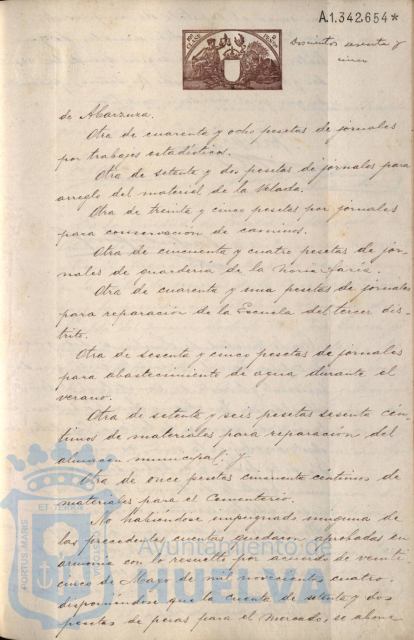 A.1.342.654*
Doscientos sesenta y
cinco
de Abarzuza.
Otra de cuarenta y ocho pesetas de jornales
por trabajos estadísticos.
Otra de setenta y dos pesetas de jornales para
arreglo del material de la Velada.
Otra de treinta y cinco pesetas por jornales
para conservación de caminos.
Otra de cincuenta y cuatro pesetas de jor-
nales de guardería de la
Otra de cuarenta y una pesetas de jornales
para reparación de la Escuela del tercer dis-
trito.
Otra de sesenta y cinco pesetas de jornales
para abastecimiento de agua durante el
verano.
Otra de setenta y seis pesetas sesenta cén-
timos de materiales para reparación del
almacen municipal; y
Otra de once pesetas cincuenta céntimos de
materiales para el Cementerio.
No habiéndose impugnado ninguna de
las precedentes cuentas quedaron aprobadas en
armonía con lo resuelto por acuerdo de veinti-
cinco de Mayo de mil novecientos cuatro,
disponiéndose que la cuenta de setenta y dos
pesetas de peras para el mercado, se abone
Ayuntamiento de
HUELVA
PORTUS MARIS
ET TERRAE